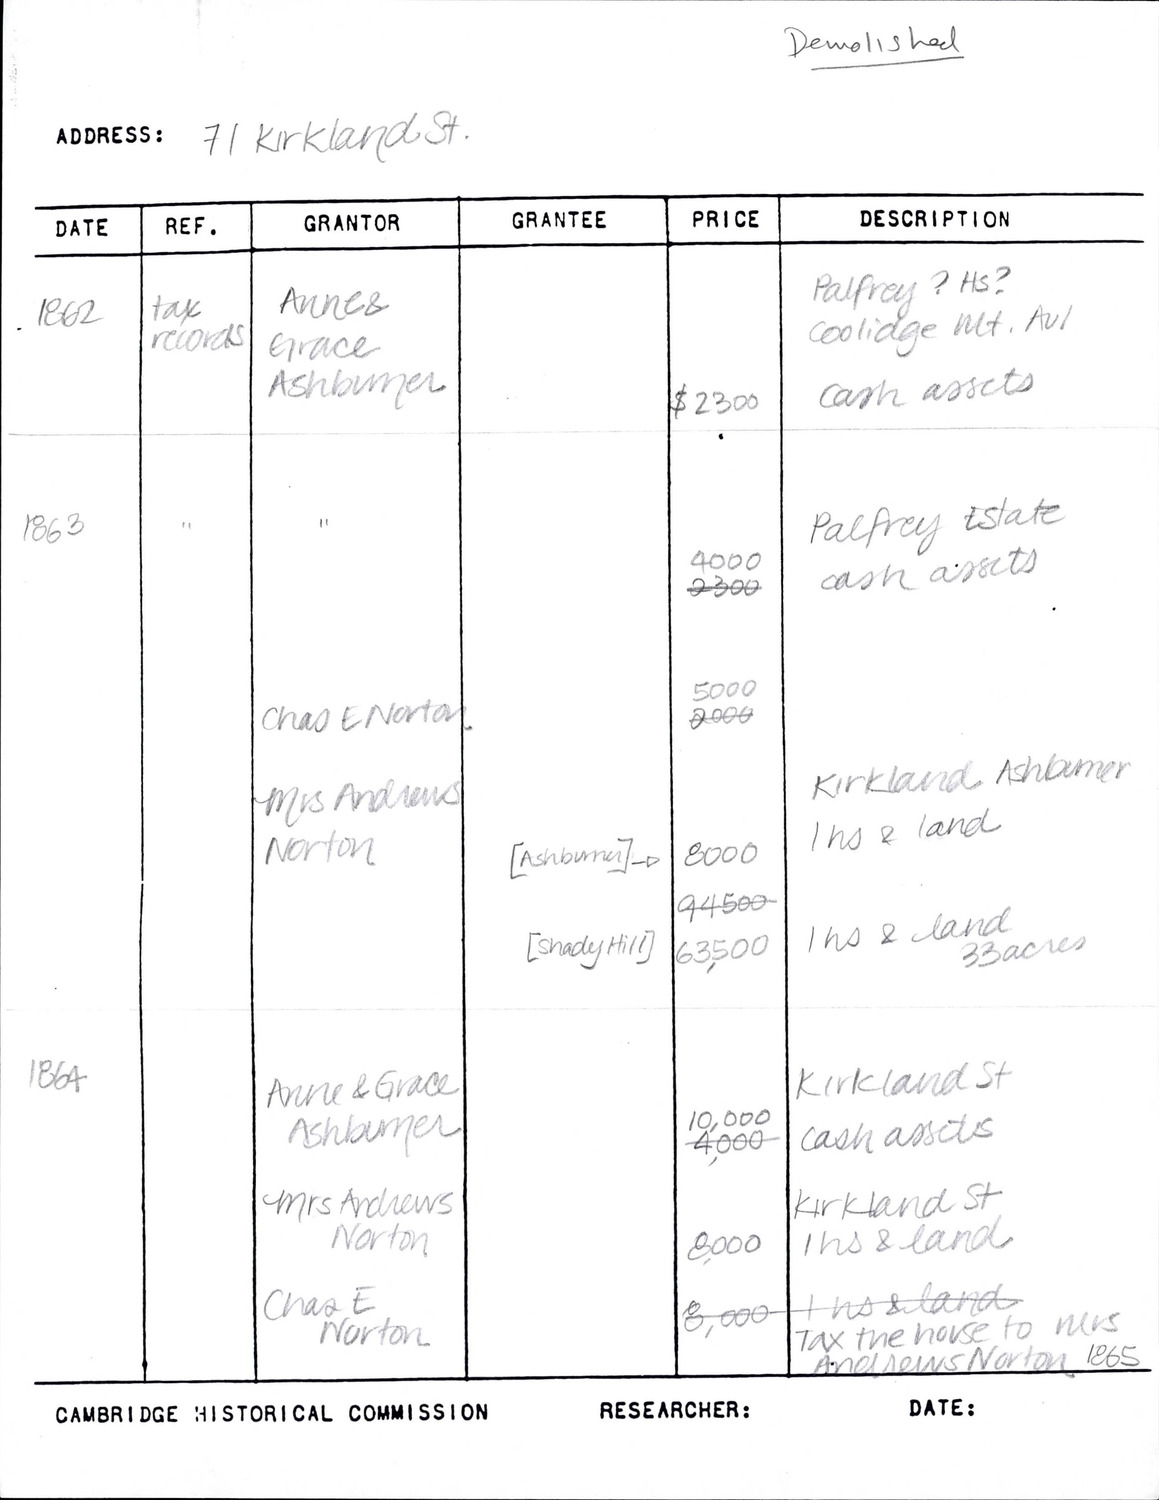 Demolished
ADDRESS: 71 Kirkland St.
DATE REF. GRANTOR GRANTEE PRICE DESCRIPTION
1862 tax records Anne & Grace Ashburner $2300 Palfrey ? Hs?
Coolidge Mt. Av/
cash assets
1863 " " Palfrey Estate
4000 cash assets
2300
5000
Chas E Norton 2000
Mrs Andrews Norton Kirkland Ashburner
[Ashburner] → 8000 1 hs & land
94500
[Shady Hill] 63,500 1 hs & land
33 acres
1864 Anne & Grace Ashburner Kirkland St
10,000 cash assets
4,000
Mrs Andrews Norton Kirkland St
8,000 1 hs & land
Chas E Norton 8,000 1 hs & land
Tax the house to Mrs
Andrews Norton 1865
CAMBRIDGE HISTORICAL COMMISSION RESEARCHER: DATE: